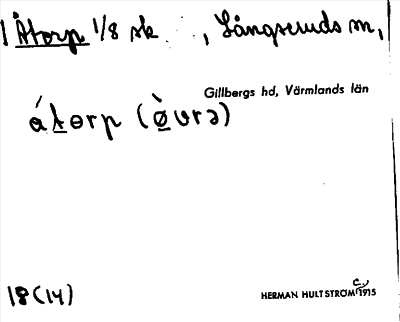 Åtorp 1/8 sk , Långseruds sn,
Gillbergs hd, Värmlands län
átorp (òvrə)
18(14)
HERMAN HULTSTRÖM c. 1915